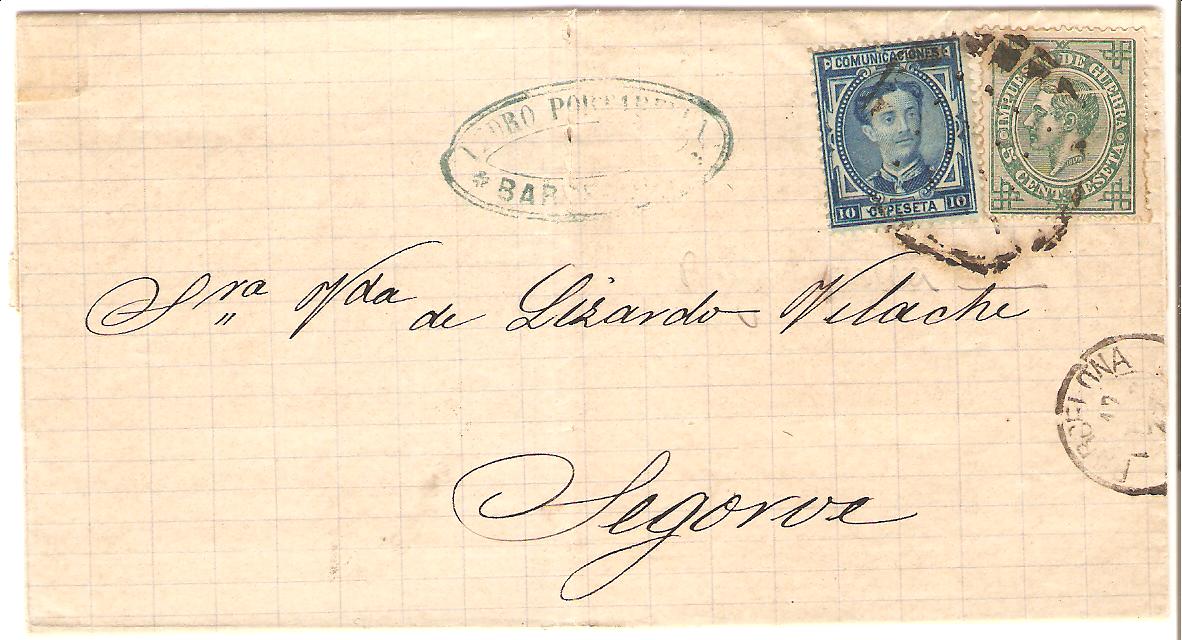 COMUNICACIONES
10 Cs PESETA 10
IMPUESTO DE GUERRA
5 CENTS PESETA
Sra Vda de Lizardo Velache
Segorve